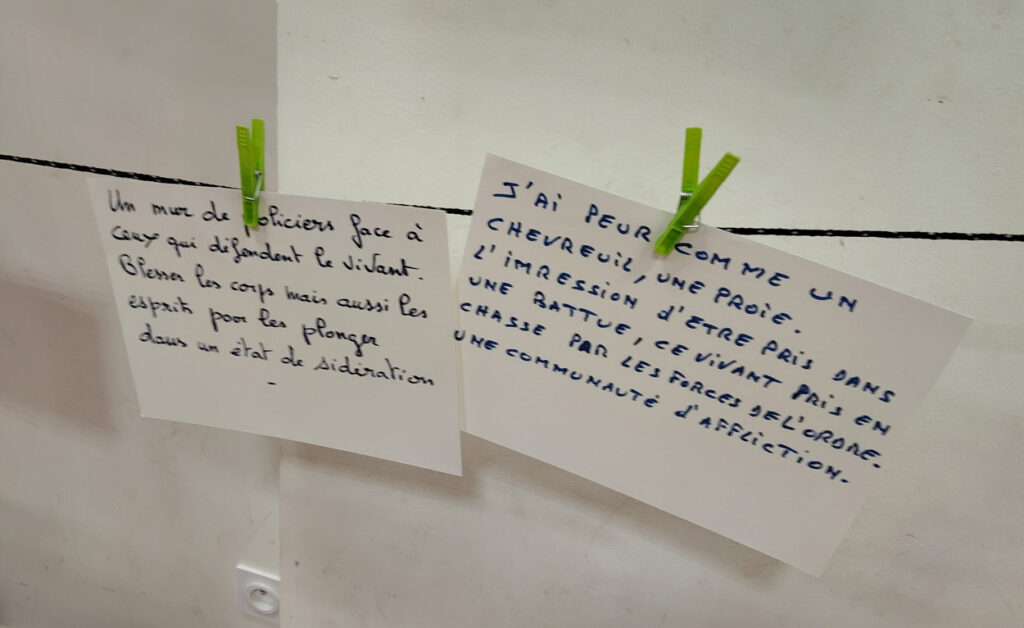 Un mur de policiers face à
ceux qui défendent le vivant.
Blesser les corps mais aussi les
esprits pour les plonger
dans un état de sidération
J'AI PEUR COMME UN
CHEVREUIL, UNE PROIE.
L'IMRESSION d'ETRE PRIS DANS
UNE BATTUE, CE VIVANT PRIS EN
CHASSE PAR LES FORCES DE L'ORDRE.
UNE COMMUNAUTÉ d'AFFLICTION.